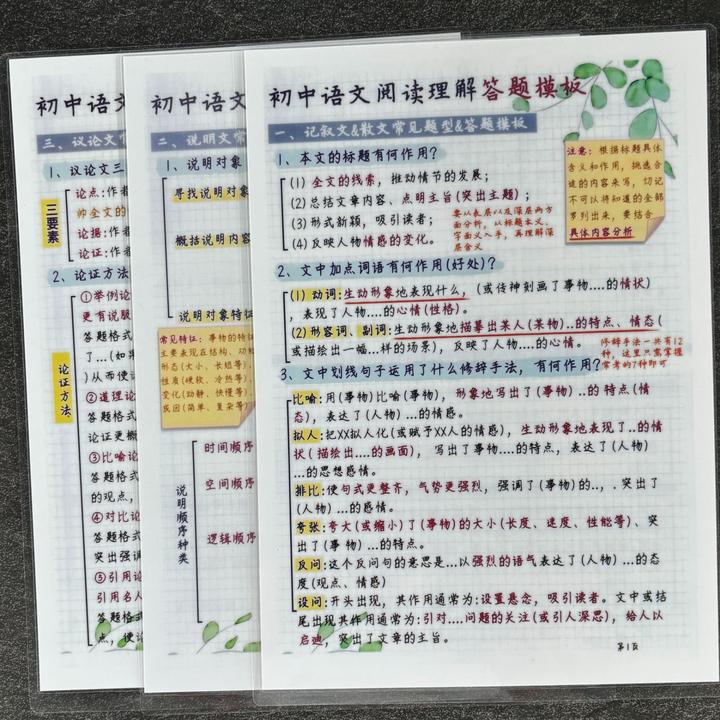 初中语文阅读理解答题模板
一、记叙文&散文常见题型&答题模板
1、本文的标题有何作用?
(1) 全文的线索, 推动情节的发展;
(2) 总结文章内容、点明主旨(突出主题);
(3) 形式新颖, 吸引读者;
(4) 反映人物情感的变化。
要从表层以及深层两方
面分析, 从标题本义、
字面义入手, 再理解深
层含义
注意: 根据标题具体
含义和作用, 挑选合
适的内容来写, 切记
不可以将知道的全部
罗列出来, 要结合
具体内容分析
2、文中加点词语有何作用(好处)?
(1) 动词: 生动形象地表现什么, (或传神刻画了事物....的情状)
, 表现了人物....的心情(性格)。
(2) 形容词、副词: 生动形象地描摹出某人(某物)..的特点、情态(
或描绘出一幅...样的场景), 反映了人物....的心情。
修辞手法一共有12
种, 这里只需掌握
常考的7种即可
3、文中划线句子运用了什么修辞手法, 有何作用?
比喻: 用(事物)比喻(事物), 形象地写出了(事物)..的 特点(情
态), 表达了(人物) ...的情感。
拟人: 把XX拟人化(或赋予XX人的情感), 生动形象地表现了..的情
状( 描绘出....的画面), 写出了事物....的特点, 表达了(人物)
...的思想感情。
排比: 使句式更整齐, 气势更强烈, 强调了(事物)的..,. 突出了
(人物) ...的感情。
夸张: 夸大(或缩小)了(事物)的大小(长度、速度、性能等)、突
出了(事 物) ...的特点。
反问: 这个反问句的意思是...以强烈的语气表达了(人物) ...的态
度(观点、情感)
设问: 开头出现, 其作用通常为: 设置悬念, 吸引读者。文中或结
尾出现其作用通常为: 引对....问题的关注(或引人深思), 给人以
启迪, 突出了文章的主旨。
第1页
初中语文
二、说明文常
1、说明对象
寻找说明对象
概括说明内容
说明对象特征
常见特征: 事物的特征
主要表现在结构、功
形态(大小、长短等)、
性质(硬软、冷热等)、
变化(动静、快慢等)、
成因(简单、复杂等)
说明顺序种类
时间顺序
空间顺序
逻辑顺序
初中语文
三、议论文常
1、议论文三
三要素
论点: 作者
帅全文的
论据: 作者
论证: 作者
2、论证方法
论证方法
①举例论
更有说服
答题格式
了...(如果
)从而使论
②道理论
答题格式
论证更概
③比喻论
答题格式
的观点,
④对比论
答题格式
突出强调
⑤引用论
引用名人
答题格式
点, 使论